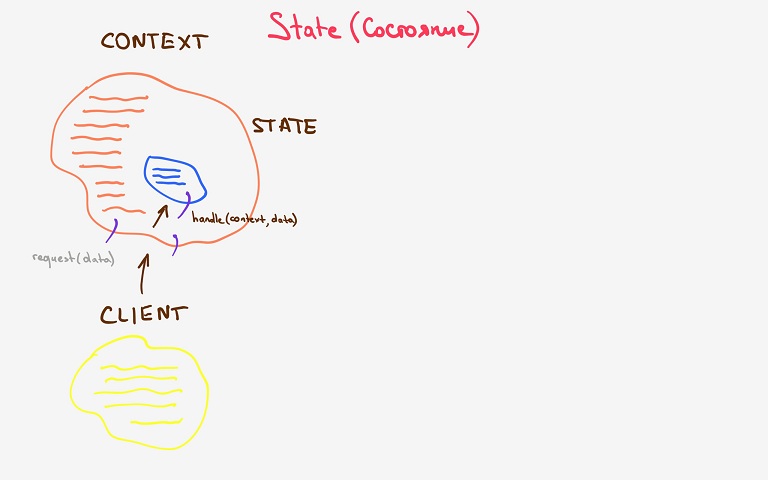 State (Состояние)
CONTEXT
STATE
handle(context, data)
request(data)
CLIENT